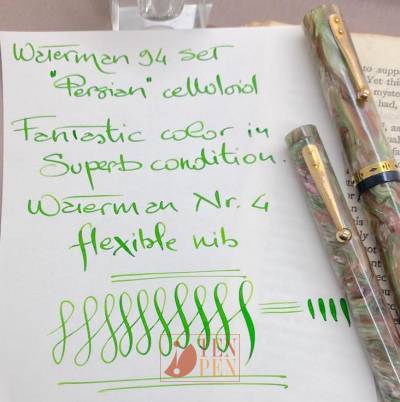 Waterman 94 set
"Persian" celluloid
Fantastic color in
Superb condition.
Waterman Nr. 4
flexible nib
PEN
Yet
had,